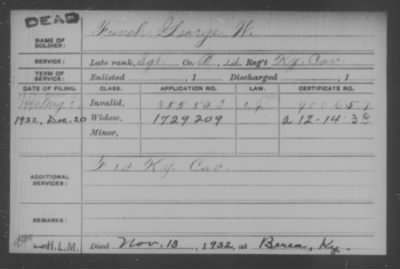 DEAD
NAME OF SOLDIER: French, George W.
SERVICE: Late rank, Sgt. Co. B, 1st Reg't Ky. Cav.
TERM OF SERVICE: Enlisted , 1 Discharged , 1
DATE OF FILING. CLASS. APPLICATION NO. LAW. CERTIFICATE NO.
1890 Aug Invalid, 855543
1932, Dec. 20 Widow, 1729209 a 12-14-38
Minor,
ADDITIONAL SERVICES: F 1st Ky. Cav.
REMARKS:
H.L.M. Died Nov. 13, 1932, at Berea, Ky.